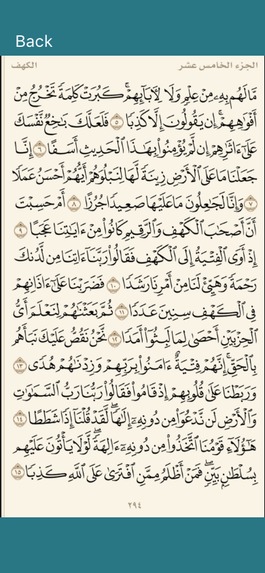 Back
الجزء الخامس عشر
الكهف
مَّا لَهُم بِهِۦ مِنْ عِلْمٍ وَلَا لِـَٔابَآئِهِمْ ۚ كَبُرَتْ كَلِمَةً تَخْرُجُ مِنْ
أَفْوَٰهِهِمْ ۚ إِن يَقُولُونَ إِلَّا كَذِبًا ٥ فَلَعَلَّكَ بَـٰخِعٌ نَّفْسَكَ
عَلَىٰٓ ءَاثَـٰرِهِمْ إِن لَّمْ يُؤْمِنُوا۟ بِهَـٰذَا ٱلْحَدِيثِ أَسَفًا ٦ إِنَّا
جَعَلْنَا مَا عَلَى ٱلْأَرْضِ زِينَةً لَّهَا لِنَبْلُوَهُمْ أَيُّهُمْ أَحْسَنُ عَمَلًا
٧ وَإِنَّا لَجَـٰعِلُونَ مَا عَلَيْهَا صَعِيدًا جُرُزًا ٨ أَمْ حَسِبْتَ
أَنَّ أَصْحَـٰبَ ٱلْكَهْفِ وَٱلرَّقِيمِ كَانُوا۟ مِنْ ءَايَـٰتِنَا عَجَبًا ٩
إِذْ أَوَى ٱلْفِتْيَةُ إِلَى ٱلْكَهْفِ فَقَالُوا۟ رَبَّنَآ ءَاتِنَا مِن لَّدُنكَ
رَحْمَةً وَهَيِّئْ لَنَا مِنْ أَمْرِنَا رَشَدًا ١٠ فَضَرَبْنَا عَلَىٰٓ ءَاذَانِهِمْ
فِى ٱلْكَهْفِ سِنِينَ عَدَدًا ١١ ثُمَّ بَعَثْنَـٰهُمْ لِنَعْلَمَ أَىُّ
ٱلْحِزْبَيْنِ أَحْصَىٰ لِمَا لَبِثُوٓا۟ أَمَدًا ١٢ نَّحْنُ نَقُصُّ عَلَيْكَ نَبَأَهُم
بِٱلْحَقِّ ۚ إِنَّهُمْ فِتْيَةٌ ءَامَنُوا۟ بِرَبِّهِمْ وَزِدْنَـٰهُمْ هُدًى ١٣
وَرَبَطْنَا عَلَىٰ قُلُوبِهِمْ إِذْ قَامُوا۟ فَقَالُوا۟ رَبُّنَا رَبُّ ٱلسَّمَـٰوَٰتِ
وَٱلْأَرْضِ لَن نَّدْعُوَا۟ مِن دُونِهِۦٓ إِلَـٰهًا ۖ لَّقَدْ قُلْنَآ إِذًا شَطَطًا ١٤
هَـٰٓؤُلَآءِ قَوْمُنَا ٱتَّخَذُوا۟ مِن دُونِهِۦٓ ءَالِهَةً ۖ لَّوْلَا يَأْتُونَ عَلَيْهِم
بِسُلْطَـٰنٍۭ بَيِّنٍ ۖ فَمَنْ أَظْلَمُ مِمَّنِ ٱفْتَرَىٰ عَلَى ٱللَّهِ كَذِبًا ١٥
٢٩٤